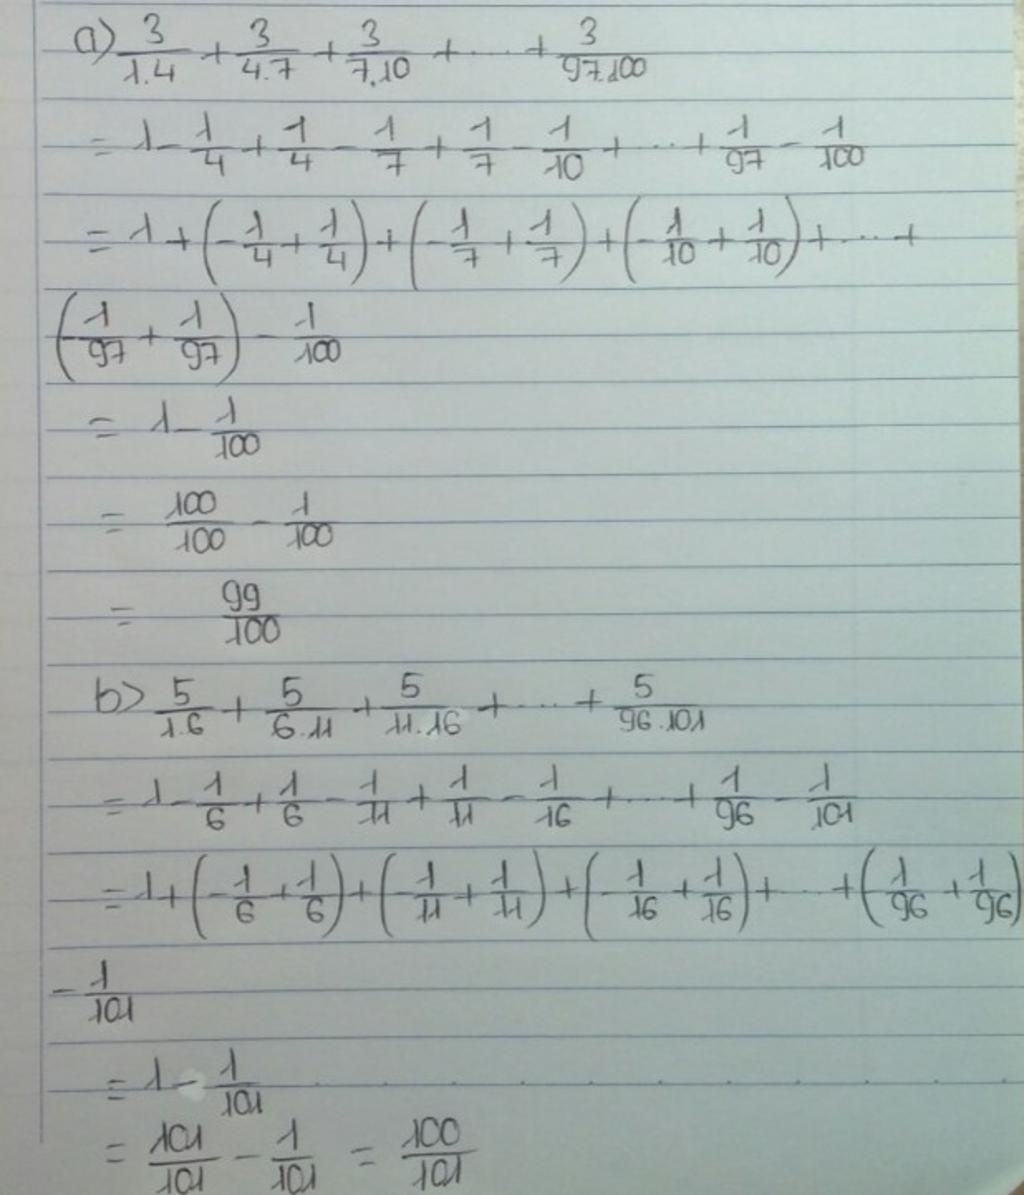 a) 3/1.4 + 3/4.7 + 3/7.10 + ... + 3/97.100
= 1 - 1/4 + 1/4 - 1/7 + 1/7 - 1/10 + ... + 1/97 - 1/100
= 1 + (-1/4 + 1/4) + (-1/7 + 1/7) + (-1/10 + 1/10) + ... +
(-1/97 + 1/97) - 1/100
= 1 - 1/100
= 100/100 - 1/100
= 99/100
b) 5/1.6 + 5/6.11 + 5/11.16 + ... + 5/96.101
= 1 - 1/6 + 1/6 - 1/11 + 1/11 - 1/16 + ... + 1/96 - 1/101
= 1 + (-1/6 + 1/6) + (-1/11 + 1/11) + (-1/16 + 1/16) + ... + (-1/96 + 1/96)
- 1/101
= 1 - 1/101
= 101/101 - 1/101 = 100/101